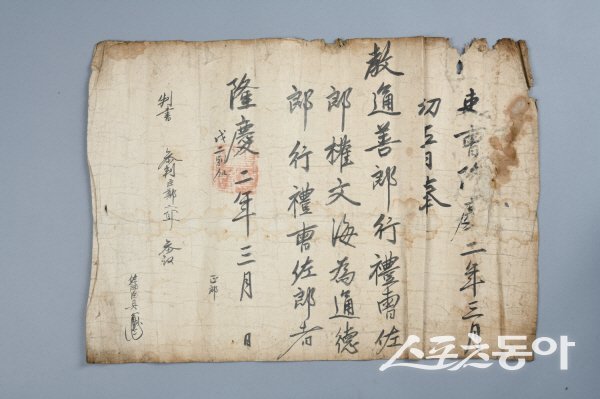 吏曹隆慶二年三月
初五日奉
教通善郎行禮曹佐
郎權文海為通德
郎行禮曹佐郎者
隆慶二年三月 日
正郎
判書 參判 參議
스포츠동아